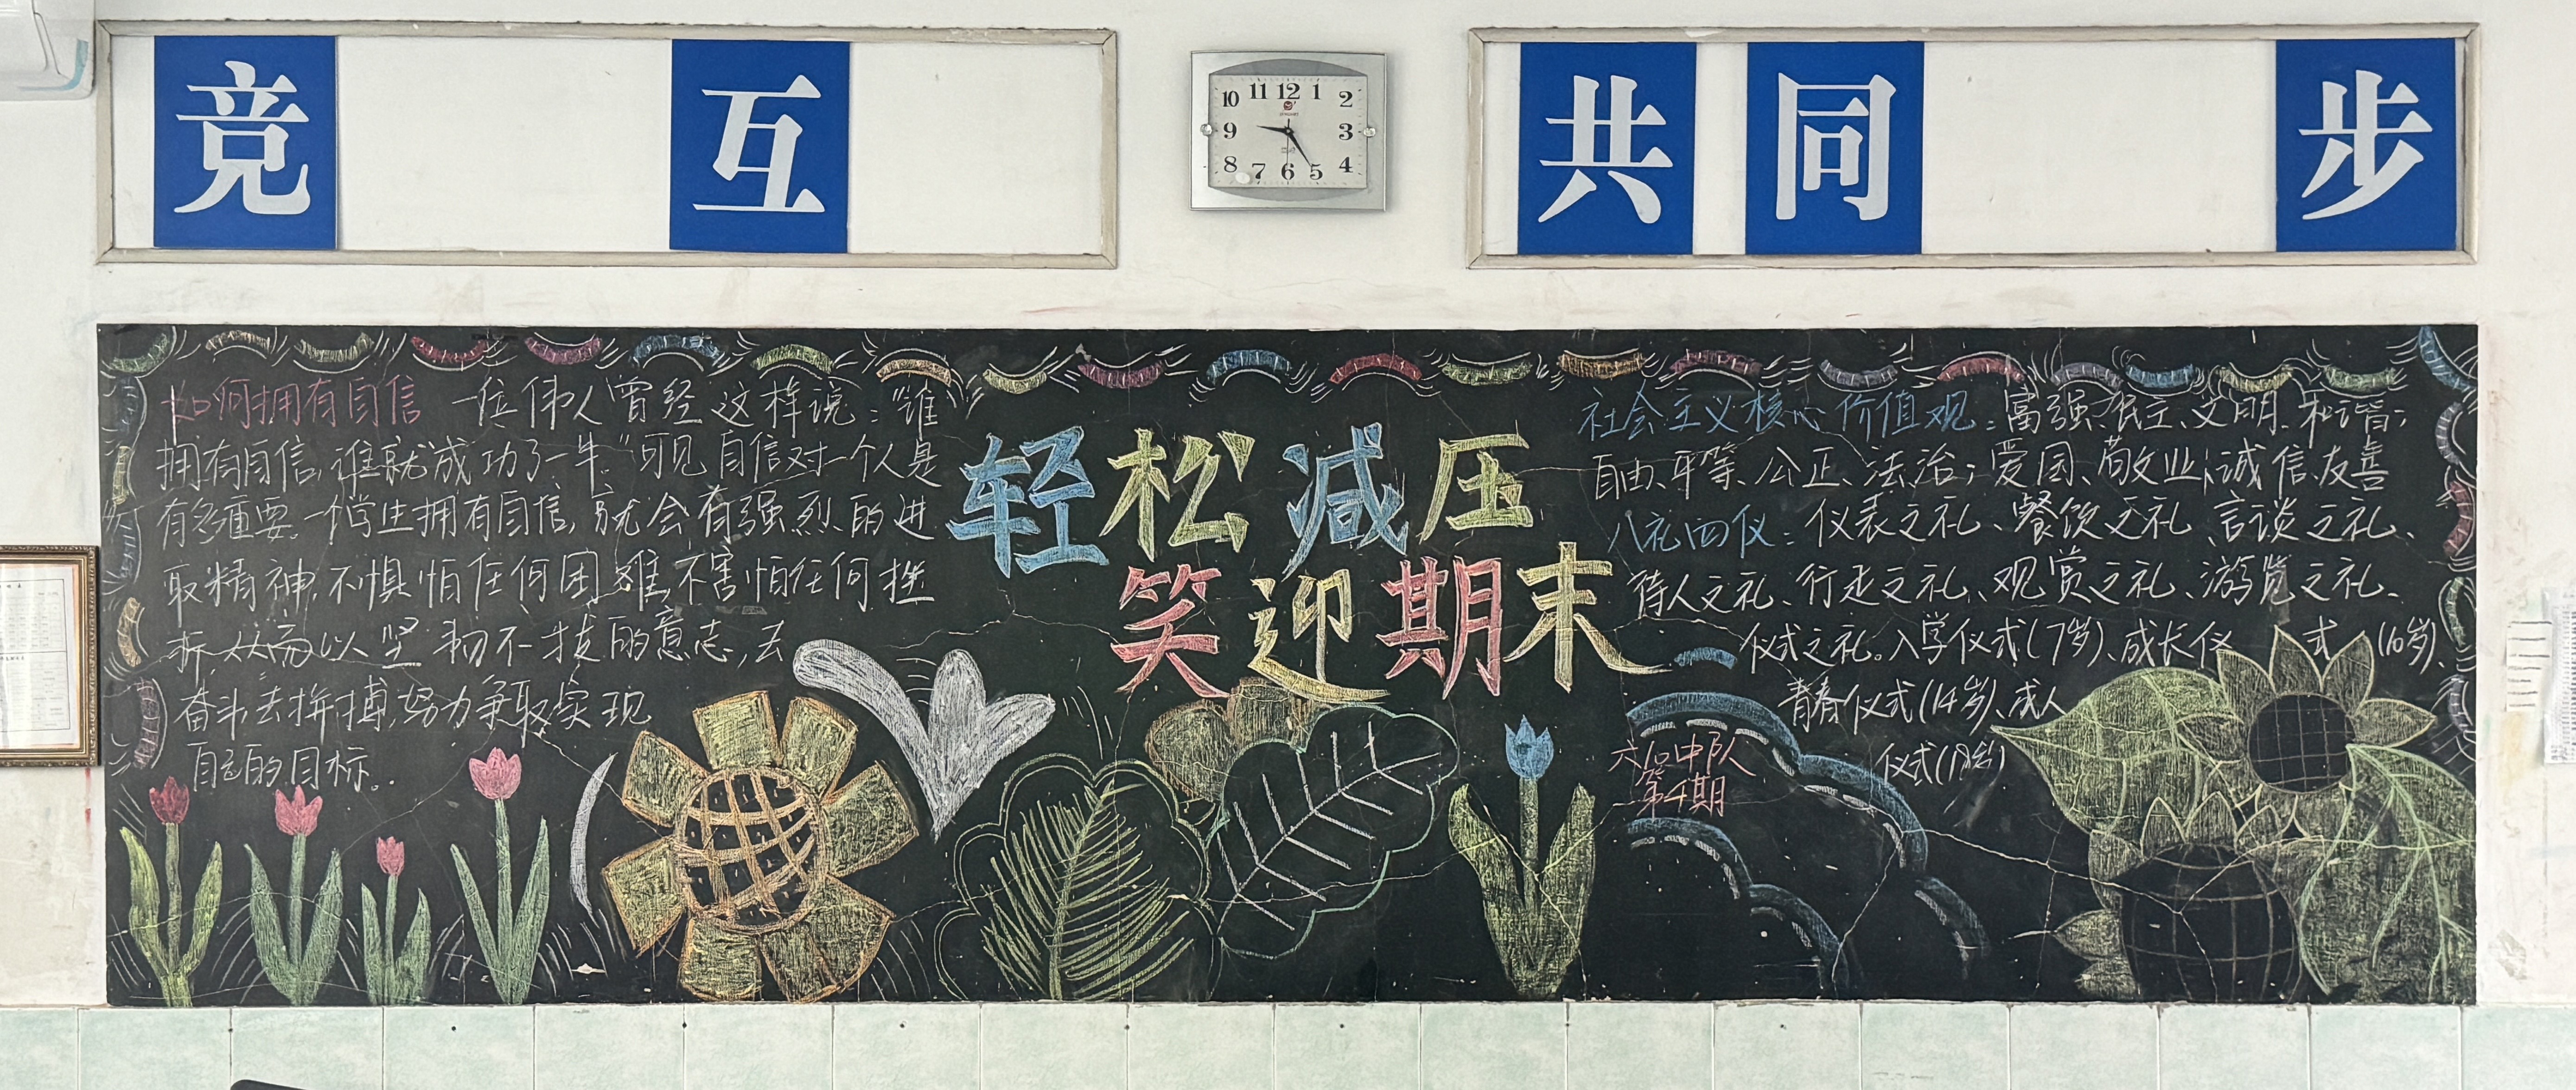 竞 互
共同 步
10 11 12 1 2
9 3
8 7 6 5 4
如何拥有自信 一位伟人曾经这样说:“谁
拥有自信,谁就成功了一半.”可见自信对一个人是
有多重要.一个学生拥有自信,就会有强烈的进
取精神,不惧怕任何困难,不害怕任何挫
折,从而以坚韧不拔的意志,去
奋斗去拚搏,努力争取实现
自己的目标..
轻松减压
笑迎期末
社会主义核心价值观:富强、民主、文明、和谐;
自由、平等、公正、法治;爱国、敬业、诚信、友善
八礼四仪:仪表之礼、餐饮之礼、言谈之礼、
待人之礼、行走之礼、观赏之礼、游览之礼、
仪式之礼。入学仪式(7岁)、成长仪式(10岁)、
青春仪式(14岁)、成人
仪式(18岁)
中队
第4期